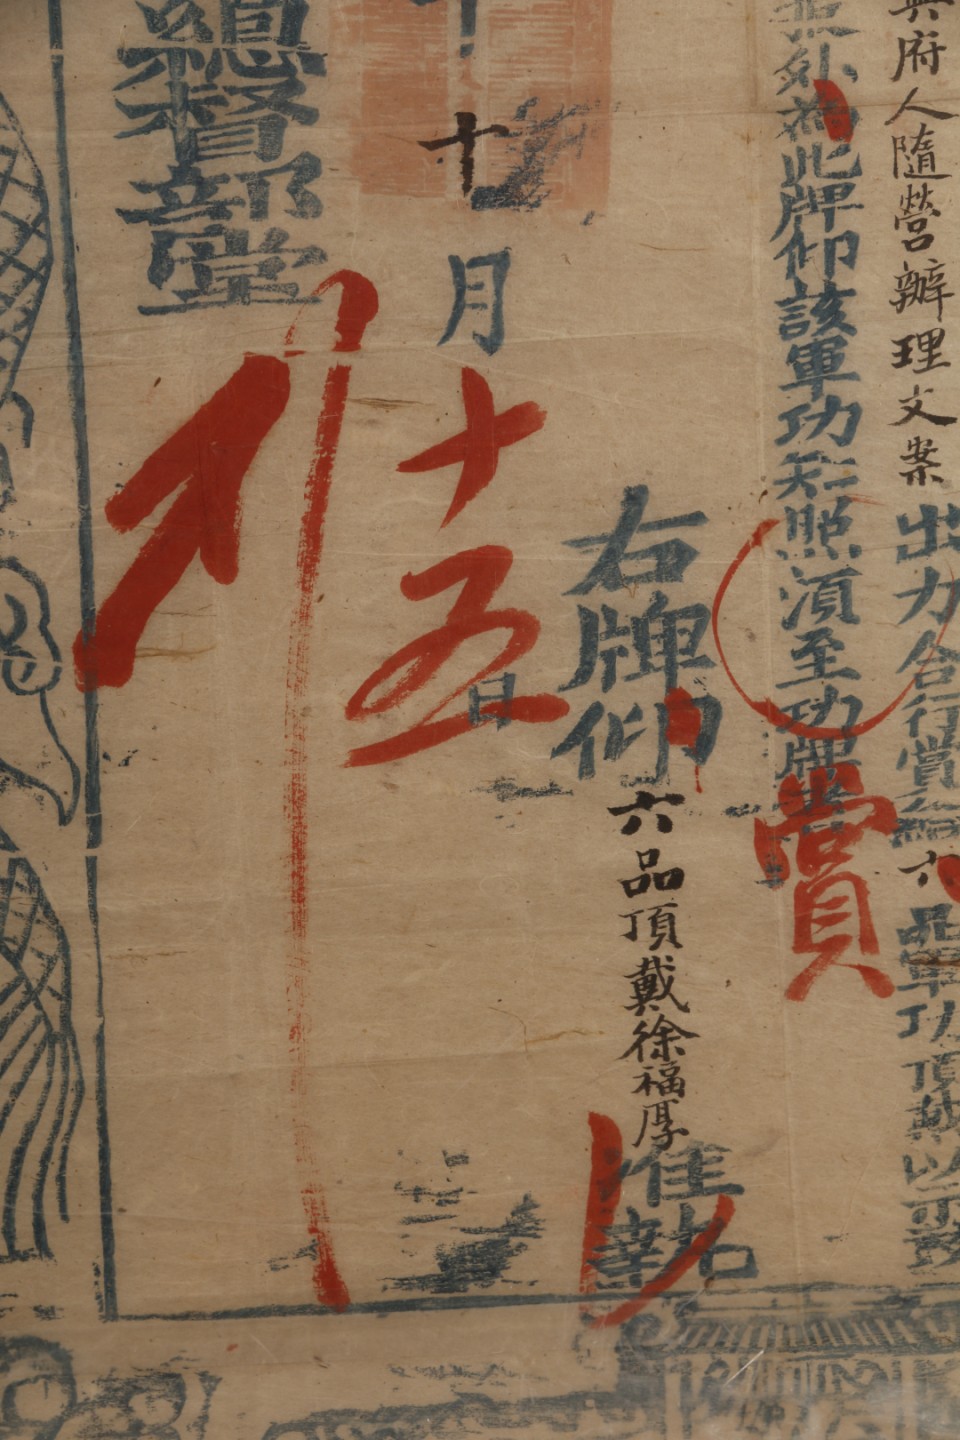 興府人隨營辦理文案出力合行賞給六品軍功頂戴以示鼓
為此牌仰該軍功知照須至功牌者
賞
右牌仰六品頂戴徐福厚准執
十月十五日
總督部堂